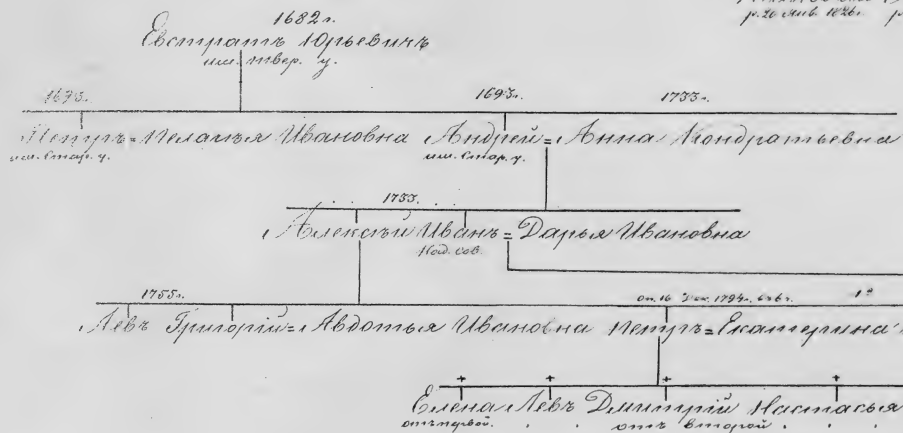 р. 26 янв. 1826г.
1682г.
Евстратъ Юрьевичъ
им. твер. у.
1693г. 1733г.
Петръ=Пелагѣя Ивановна Андрей=Анна Кондратьевна
им. Стар. у. им. Стар. у.
1733.
Алексѣй Иванъ=Дарья Ивановна
Над. сов.
1755г. 1794г. 1º
Левъ Григорій=Авдотья Ивановна Петръ=Екатерина
+ + + +
Елена Левъ Дмитрій Настасья
отъ первой. отъ второй